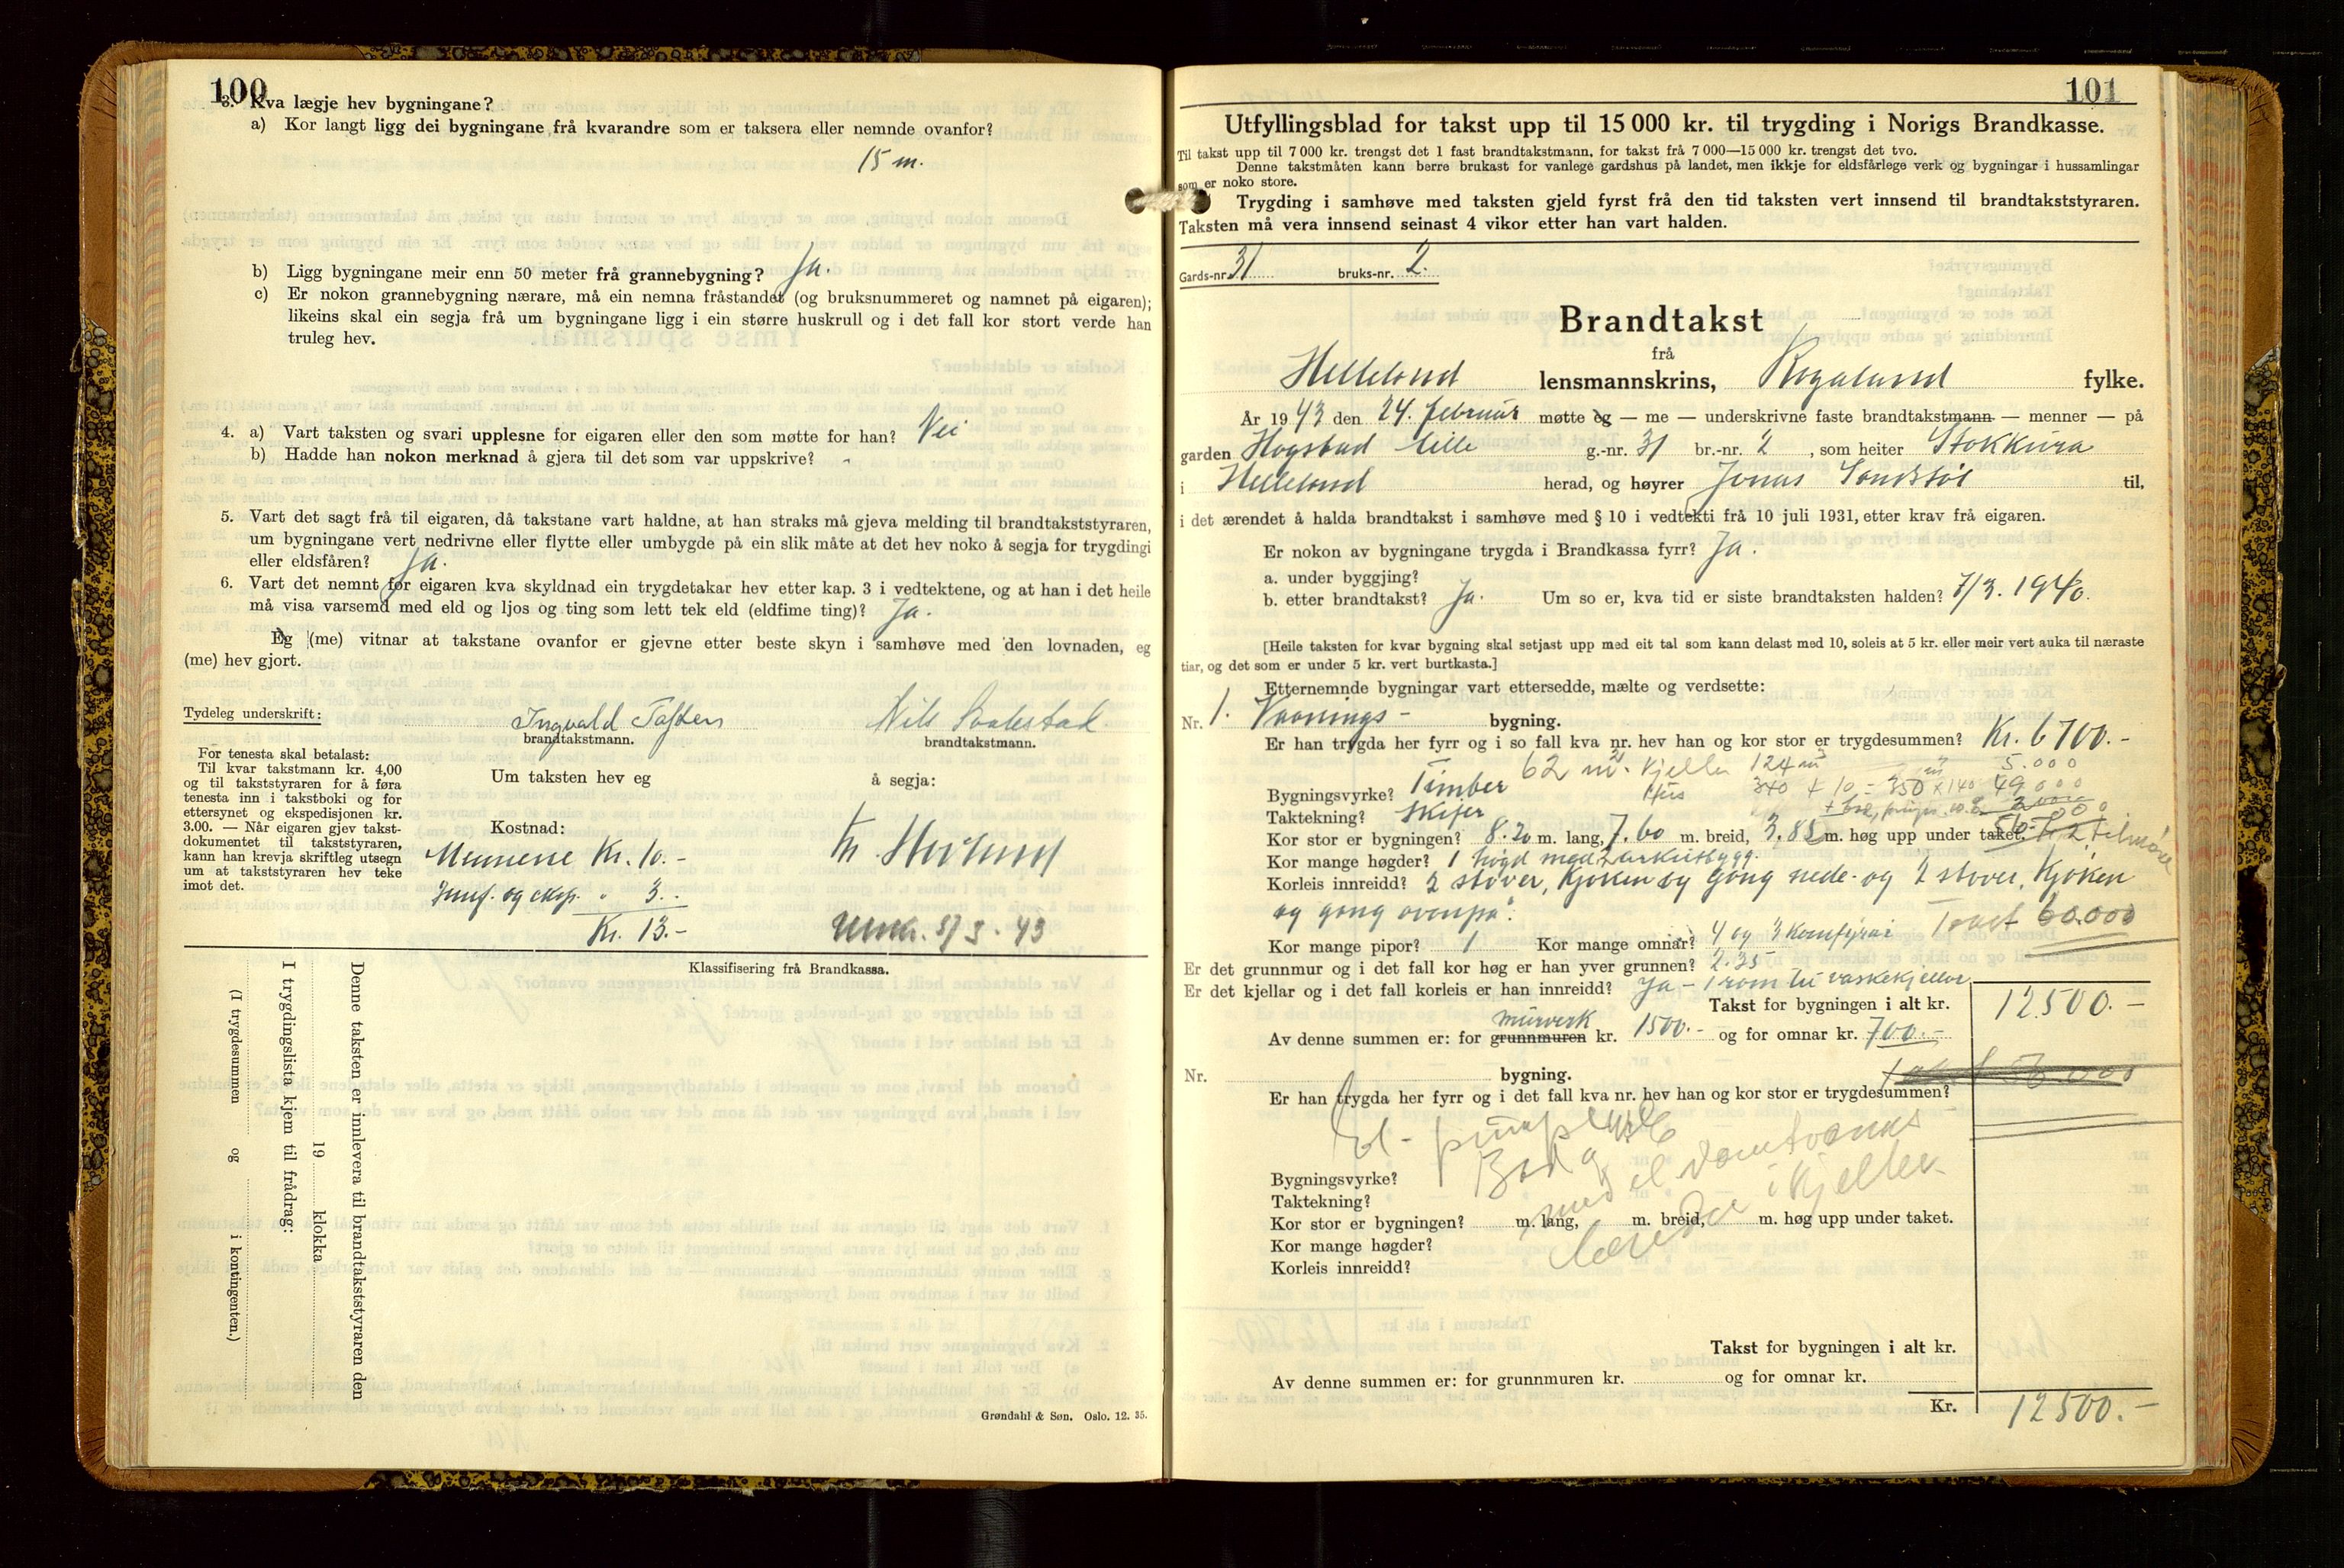 100
3. Kva lægje hev bygningane?
a) Kor langt ligg dei bygningane frå kvarandre som er taksera eller nemnde ovanfor?
15 m.
b) Ligg bygningane meir enn 50 meter frå grannebygning? Ja.
c) Er nokon grannebygning nærare, må ein nemna fråstandet (og bruksnummeret og namnet på eigaren);
likeins skal ein segja frå um bygningane ligg i ein større huskrull og i det fall kor stort verde han
truleg hev.
4. a) Vart taksten og svari upplesne for eigaren eller den som møtte for han? Nei
b) Hadde han nokon merknad å gjera til det som var uppskrive? -
5. Vart det sagt frå til eigaren, då takstane vart haldne, at han straks må gjeva melding til brandtakststyraren,
um bygningane vert nedrivne eller flytte eller umbygde på ein slik måte at det hev noko å segja for trygdingi
eller eldsfåren? Ja.
6. Vart det nemnt for eigaren kva skyldnad ein trygdetakar hev etter kap. 3 i vedtektene, og at han i det heile
må visa varsemd med eld og ljos og ting som lett tek eld (eldfime ting)? Ja.
Eg (me) vitnar at takstane ovanfor er gjevne etter beste skyn i samhøve med den lovnaden, eg
(me) hev gjort.
Tydeleg underskrift: Ingvald Nils
brandtakstmann. brandtakstmann.
For tenesta skal betalast:
Til kvar takstmann kr. 4,00
og til takststyraren for å føra
tenesta inn i takstboki og for
ettersynet og ekspedisjonen kr.
3.00. — Når eigaren gjev takst-
dokumentet til takststyraren,
kann han krevja skriftleg utsegn
um at takststyraren hev teke
imot det.
Um taksten hev eg å segja:
Kostnad:
Mennene Kr. 10.-
og eksp. " 3.-
Kr. 13.-
43
Klassifisering frå Brandkassa.
Denne taksten er innlevera til brandtakststyraren den
19 klokka
I trygdingslista kjem til frådrag:
(I trygdesummen og i kontingenten.)
Grøndahl & Søn. Oslo. 12. 35.
101
Utfyllingsblad for takst upp til 15 000 kr. til trygding i Norigs Brandkasse.
Til takst upp til 7 000 kr. trengst det 1 fast brandtakstmann, for takst frå 7 000—15 000 kr. trengst det tvo.
Denne takstmåten kann berre brukast for vanlege gardshus på landet, men ikkje for eldsfårlege verk og bygningar i hussamlingar
som er noko store.
Trygding i samhøve med taksten gjeld fyrst frå den tid taksten vert innsend til brandtakststyraren.
Taksten må vera innsend seinast 4 vikor etter han vart halden.
Gards-nr. 31 bruks-nr. 2.
Brandtakst
frå
Helleland lensmannskrins, Rogaland fylke.
År 1943 den 24. februar møtte eg — me — underskrivne faste brandtakstmann — menner — på
garden Hogstad lille g.-nr. 31 br.-nr. 2, som heiter Stokkura
i Helleland herad, og høyrer Jonas til,
i det ærendet å halda brandtakst i samhøve med § 10 i vedtekti frå 10 juli 1931, etter krav frå eigaren.
Er nokon av bygningane trygda i Brandkassa fyrr? Ja.
a. under byggjing?
b. etter brandtakst? Ja. Um so er, kva tid er siste brandtaksten halden? 7/3. 1940.
[Heile taksten for kvar bygning skal setjast upp med eit tal som kann delast med 10, soleis at 5 kr. eller meir vert auka til næraste
tiar, og det som er under 5 kr. vert burtkasta.]
Etternemnde bygningar vart ettersedde, mælte og verdsette:
Nr. 1. Vaanings- bygning.
Er han trygda her fyrr og i so fall kva nr. hev han og kor stor er trygdesummen? Kr. 6700.-
62 m². Kjeller 124 m 5.000
Bygningsvyrke? Timber 340 + 10 = 350 x 140 49000
Taktekning? Skifer
Kor stor er bygningen? 8.20 m. lang, 7.60 m. breid, 3.85 m. høg upp under taket.
Kor mange høgder? 1 høgd med
Korleis innreidd? 2 stover, kjøken og gong nede- og 2 stover, kjøken
og gong ovenpå. Takst 60.000
Kor mange pipor? 1 Kor mange omnar? 4 og 3 komfyrar
Er det grunnmur og i det fall kor høg er han yver grunnen? 2.35
Er det kjellar og i det fall korleis er han innreidd? Ja - 1 rom til vaskekjeller
Takst for bygningen i alt kr. 12500.-
Av denne summen er: for grunnmuren murverk kr. 1500.- og for omnar kr. 700.-
Nr. bygning.
Er han trygda her fyrr og i det fall kva nr. hev han og kor stor er trygdesummen?
El-
Bad og
med el
i kjeller
Bygningsvyrke?
Taktekning?
Kor stor er bygningen? m. lang, m. breid, m. høg upp under taket.
Kor mange høgder?
Korleis innreidd?
Takst for bygningen i alt kr.
Av denne summen er: for grunnmuren kr. og for omnar kr.
Kr. 12500.-